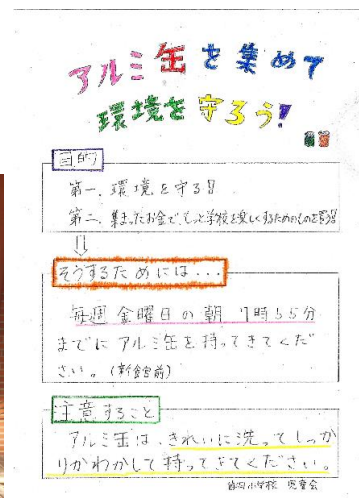 アルミ缶を集めて
環境を守ろう!
目的
第一、環境を守る!!
第二、集まったお金で、もっと学校を楽しくするためのものを買う!!
そうするためには...
毎週金曜日の朝、7時55分
までにアルミ缶を持ってきてくだ
さい。(新館前)
注意すること
アルミ缶は、きれいに洗ってしっか
りかわかして持ってきてください。
小学校 児童会